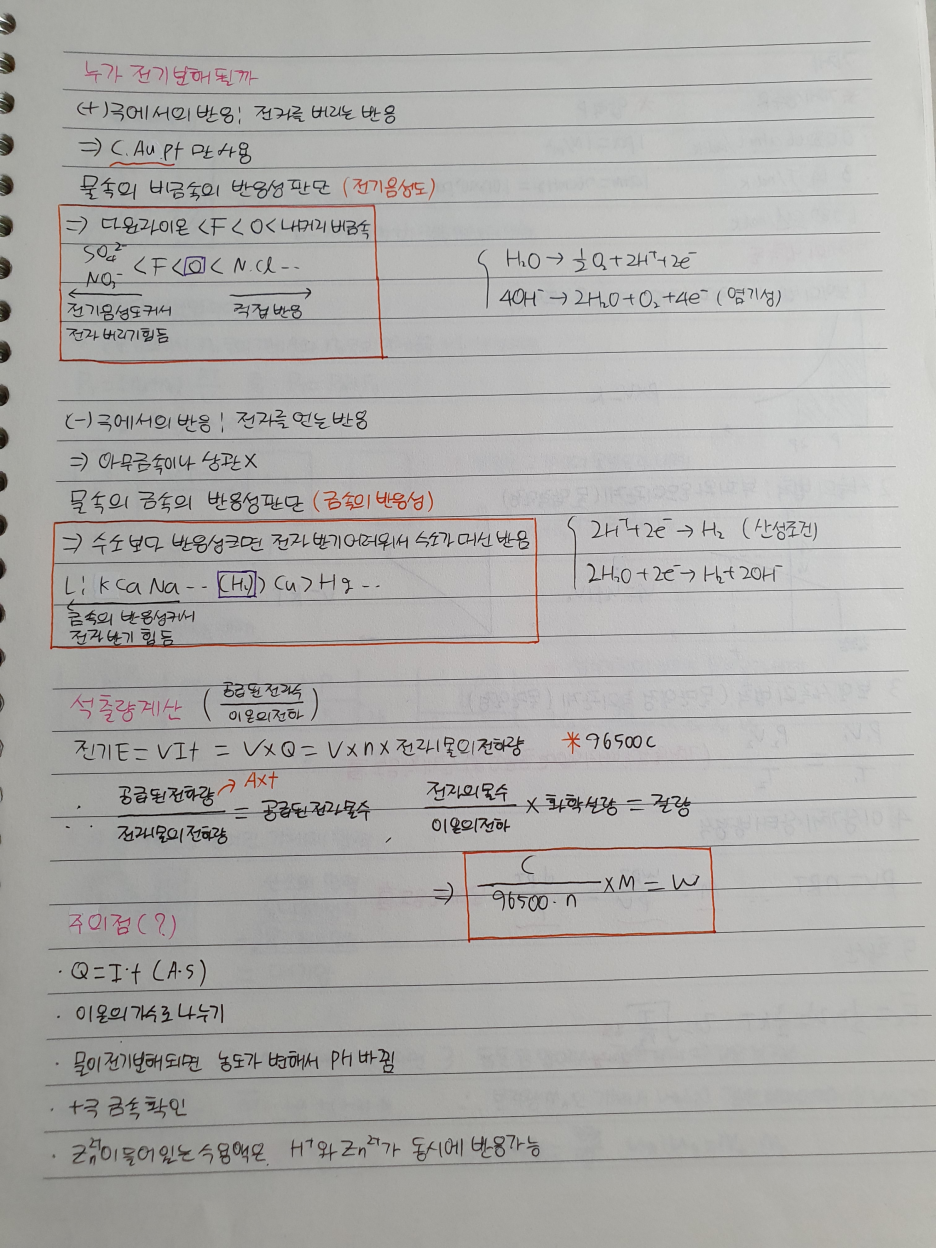 누가 전기분해 될까
(+)극에서의 반응; 전자를 버리는 반응
⇒ C.Au.Pt 만 사용
물속의 비금속의 반응성판단 (전기음성도)
⇒ 다원자이온 < F < O < 나머지 비금속
SO₄²⁻
NO₃⁻ < F < O < N.Cl...
전기음성도커서 직접반응
전자 버리기 힘듦
H₂O → ½O₂ + 2H⁺ + 2e⁻
4OH⁻ → 2H₂O + O₂ + 4e⁻ (염기성)
(-)극에서의 반응; 전자를 얻는 반응
⇒ 아무금속이나 상관X
물속의 금속의 반응성판단 (금속의 반응성)
⇒ 수소보다 반응성크면 전자 받기어려워서 수소가 대신 반응
Li K Ca Na ... (H₂) > Cu > Hg ...
금속의 반응성커서
전자받기 힘듦
2H⁺ + 2e⁻ → H₂ (산성조건)
2H₂O + 2e⁻ → H₂ + 2OH⁻
석출량계산 (공급된전자수 / 이온의전하)
전기E = VIt = V×Q = V×n×전자1몰의전하량 *96500C
∴ 공급된전하량 / 전자1몰의전하량 = 공급된전자몰수, 전자의몰수 / 이온의전하 × 화학식량 = 질량
→ A×t
⇒ C / 96500·n × M = W
주의점(?)
· Q = I·t (A·s)
· 이온의가수로 나누기
· 물이전기분해되면 농도가 변해서 PH 바뀜
· +극 금속확인
· Zn²⁺이 들어있는 수용액은 H⁺와 Zn²⁺가 동시에 반응가능